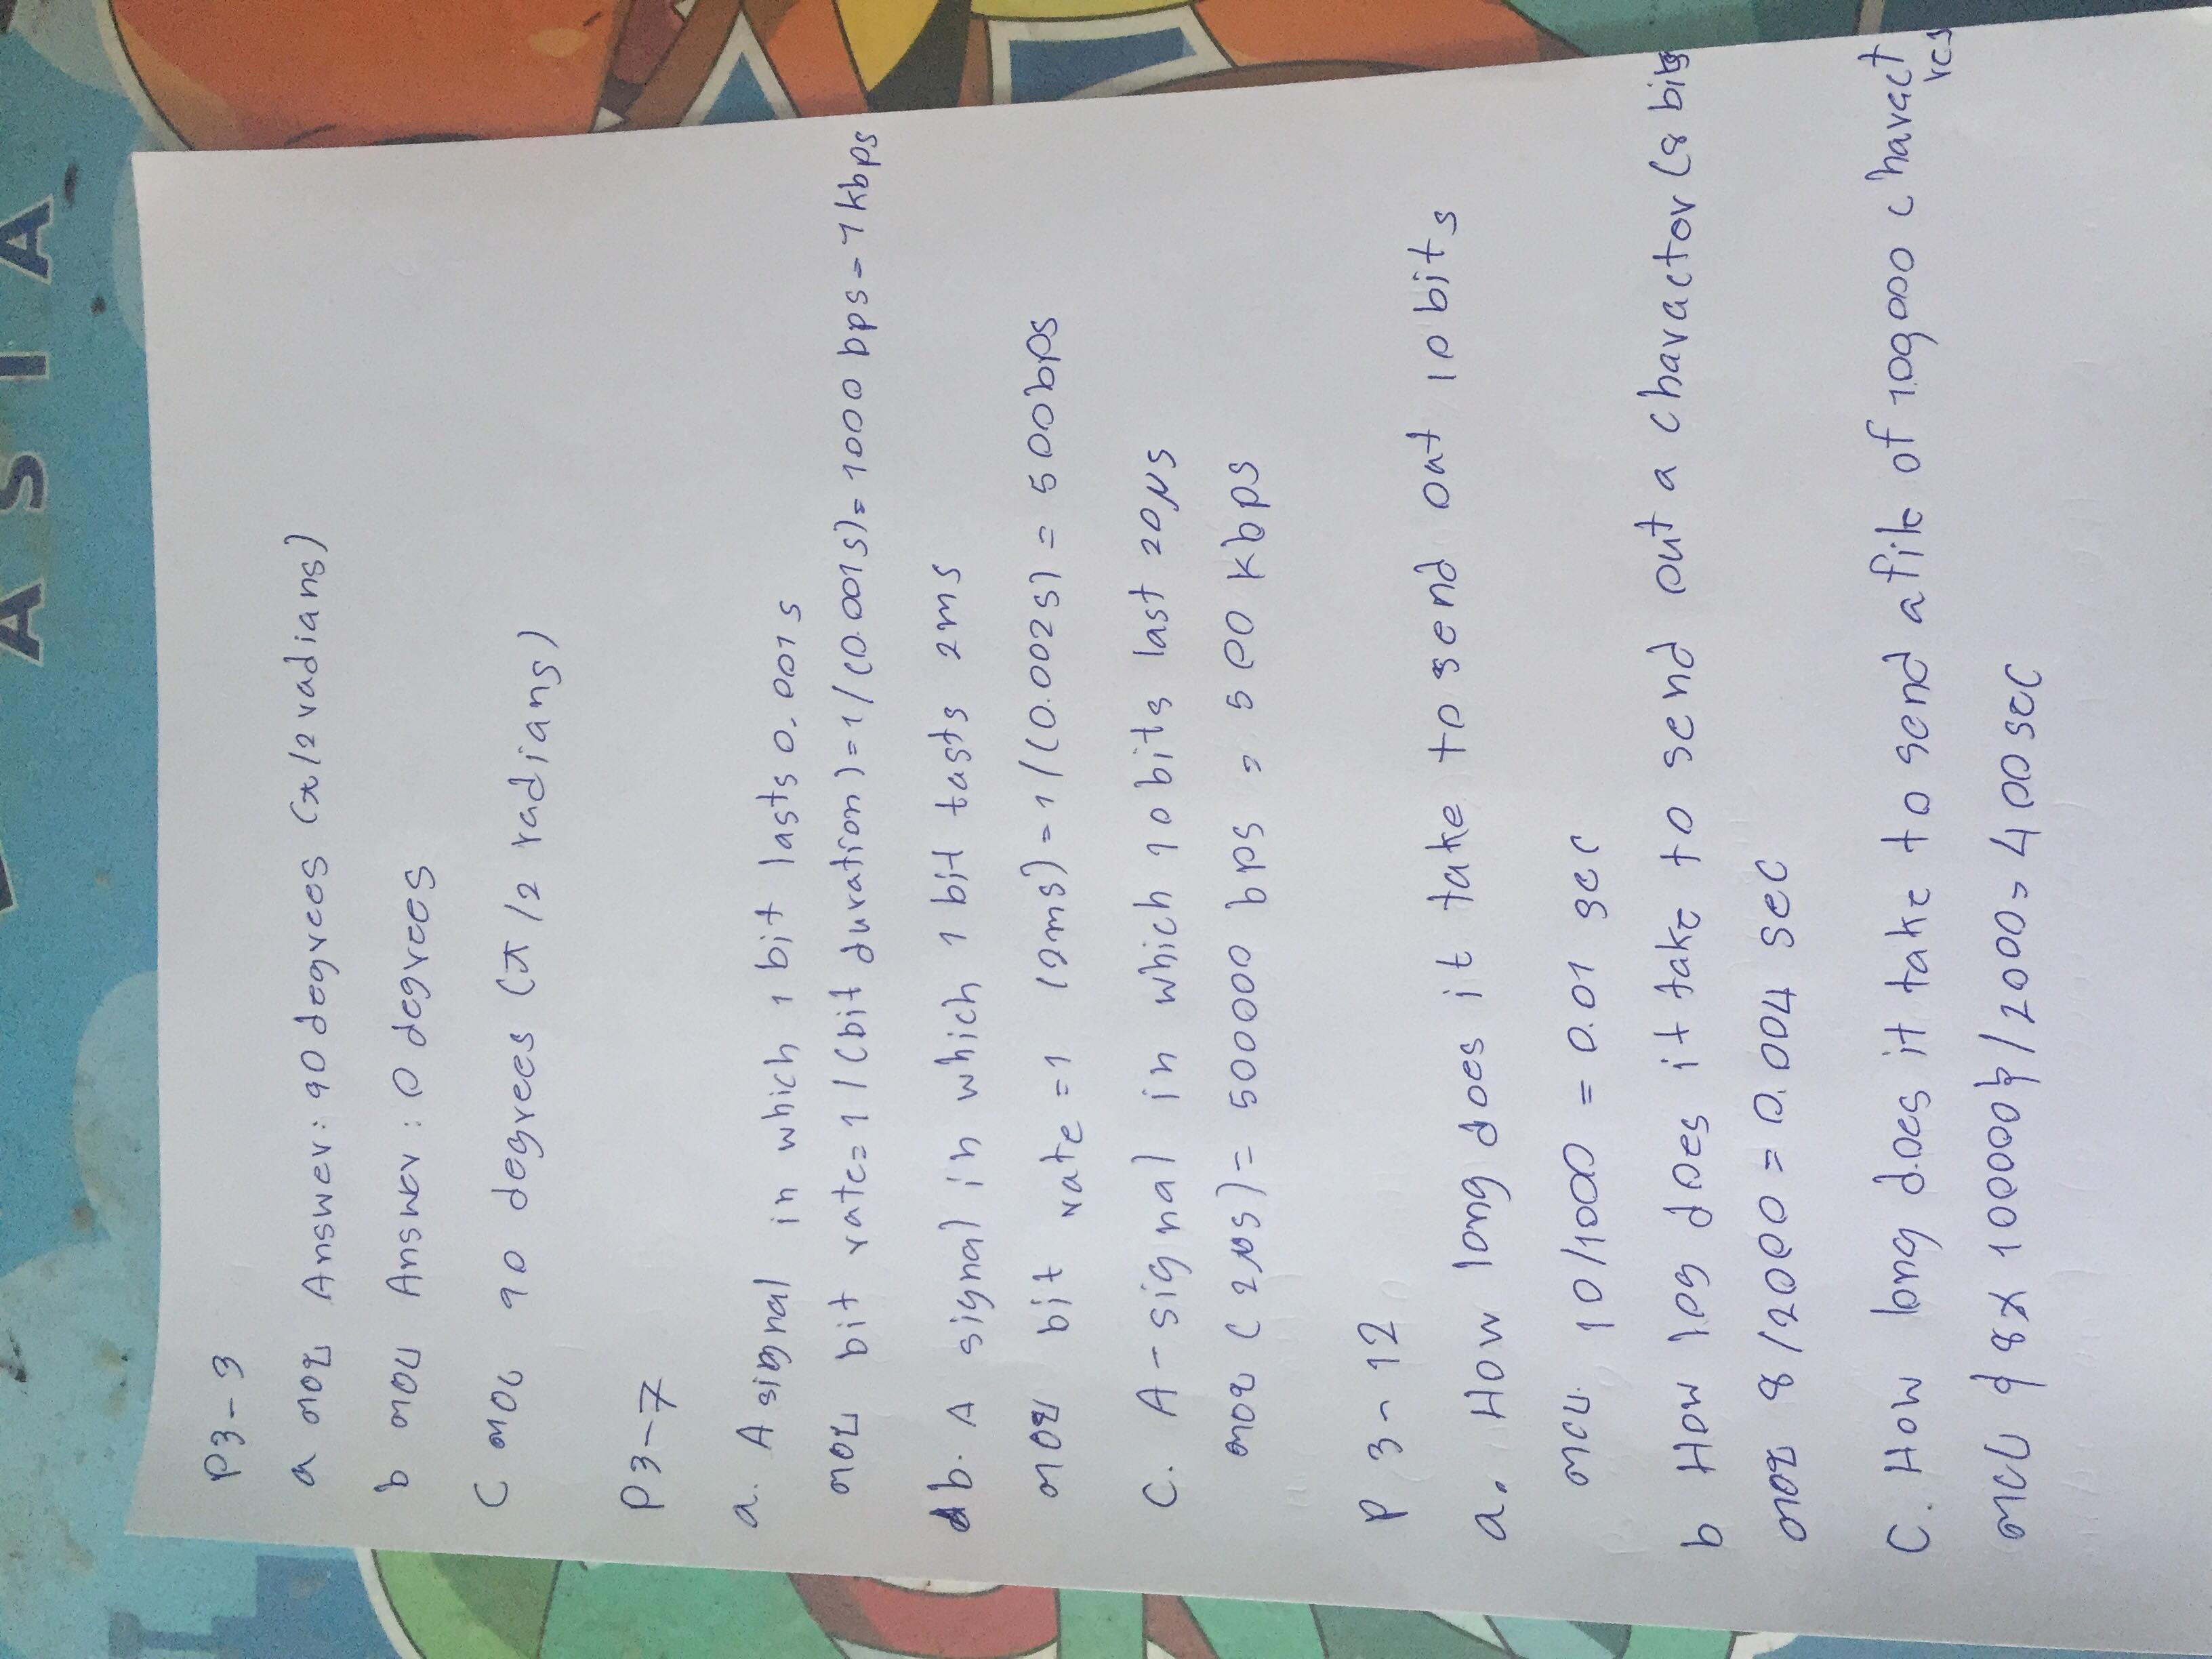 ASIA
P3-3
a ตอบ Answer: 90 degrees (π/2 radians)
b ตอบ Answer: 0 degrees
C ตอบ 90 degrees (π/2 radians)
P3-7
a. A signal in which 1 bit lasts 0.001s
ตอบ bit rate = 1/(bit duration) = 1/(0.001s) = 1000 bps = 1 kbps
b. A signal in which 1 bit lasts 2ms
ตอบ bit rate = 1 (2ms) = 1/(0.002s) = 500bps
C. A-signal in which 10 bits last 20μs
ตอบ (2μs) = 500000 bps = 500 kbps
P 3-12
a. How long does it take to send out 10bits
ตอบ 10/1000 = 0.01 sec
b How log does it take to send out a charactor (8 bits
ตอบ 8/2000 = 0.004 sec
C. How long does it take to send a file of 100,000 charact
res
ตอบ 8x 100000/2000 = 400sec